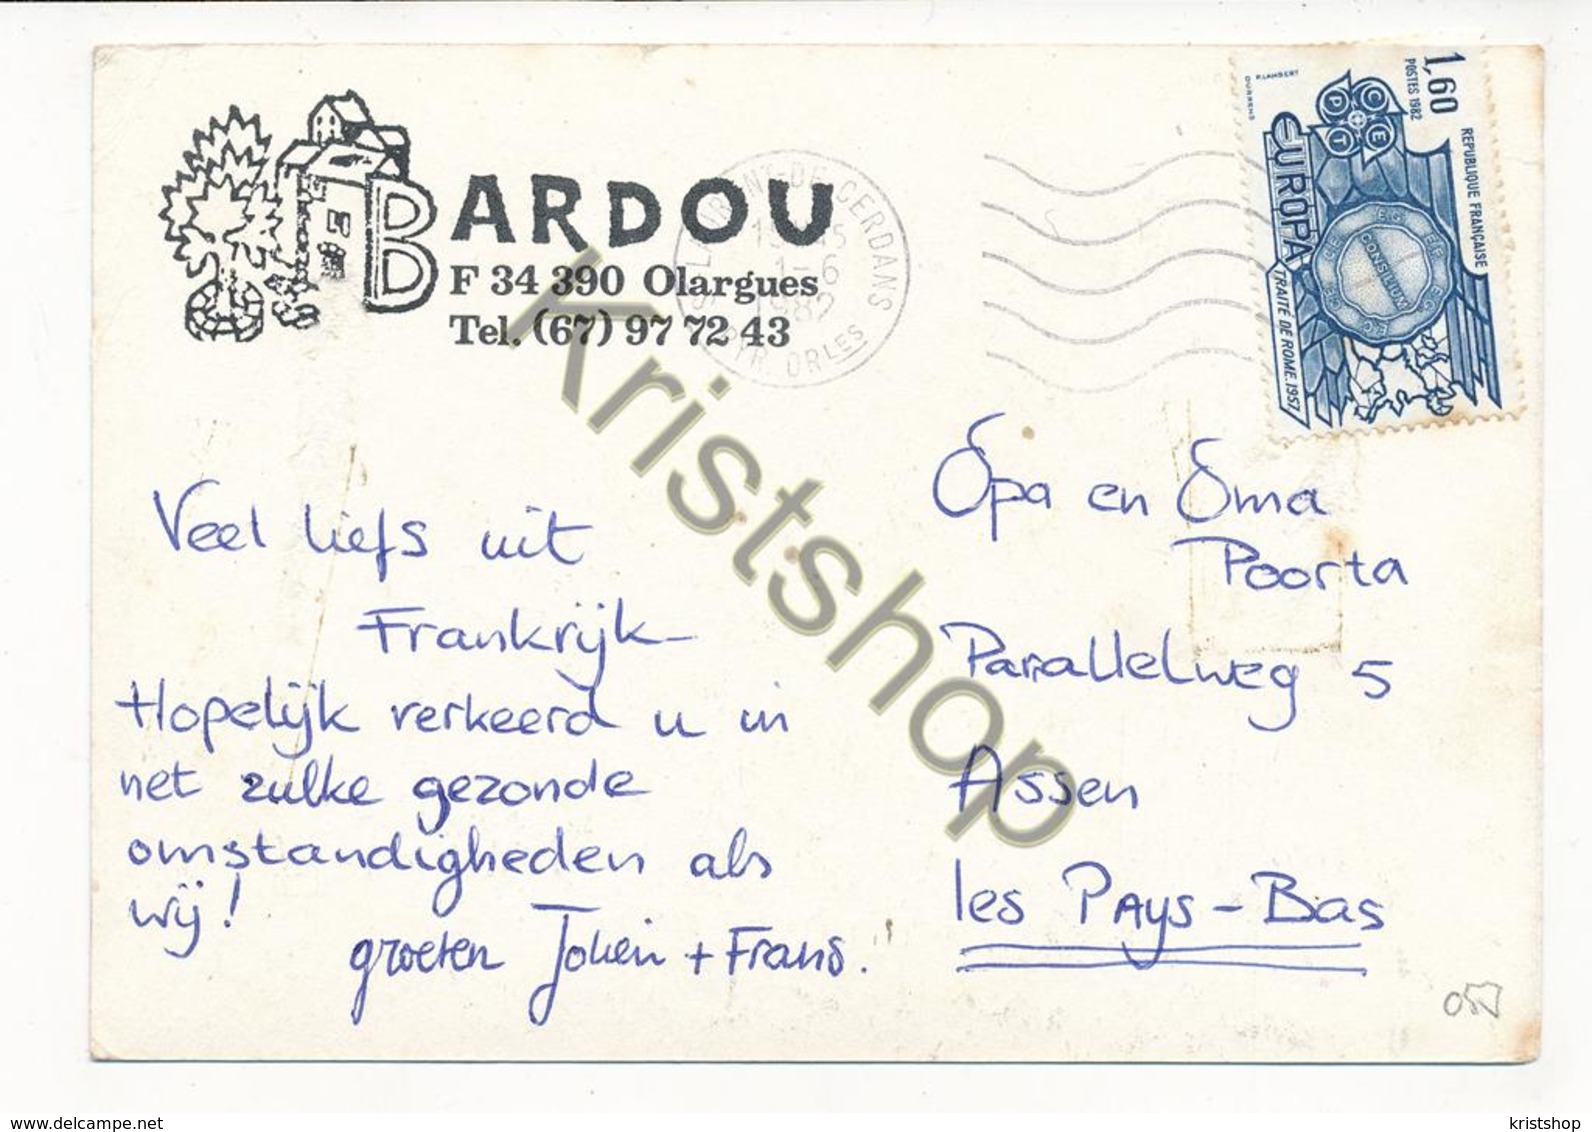 BARDOU
F 34 390 Olargues
Tel. (67) 97 72 43
ST LAURENT-DE-CERDANS
1-6
1982
PYR. ORLES
1,60
POSTES 1982
REPUBLIQUE FRANÇAISE
P.LAMBERT
DURRENS
CEPT
EUROPA
CONSILIUM
TRAITÉ DE ROME.1957
Veel liefs uit
Frankrijk-
Hopelijk verkeerd u in
net zulke gezonde
omstandigheden als
wij!
groeten Jolien + Frans.
Opa en Oma
Poorta
Parallelweg 5
Assen
les PAys-Bas
Kristshop
delcampe.net
kristshop